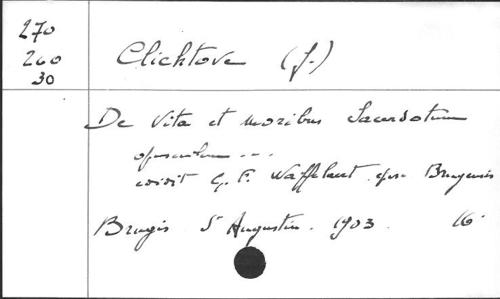 270
260
30
Clichtove (J.)
De Vita et moribus Sacerdotum
opusculum ...
edidit G. F. Waffelaert epis. Brugensis
Brugis St Augustin. 1903. 16°